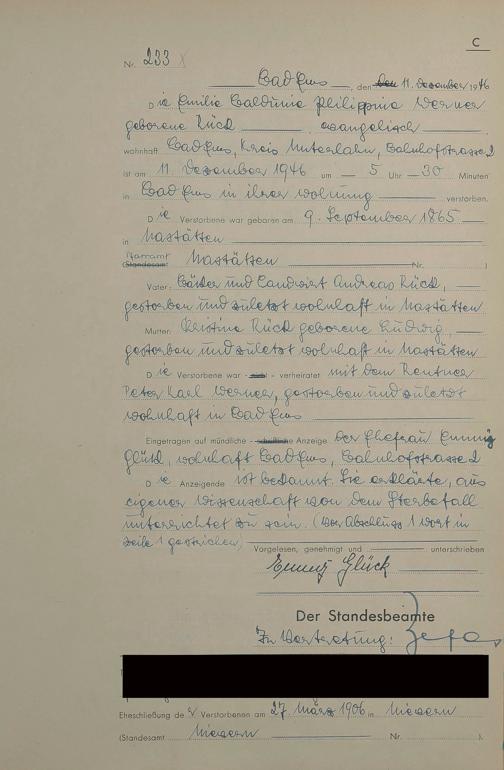 C
Nr. 233
Bad Ems, den 11. Dezember 1946
Die Emilie Philippine Werner
geborene Rück evangelisch
wohnhaft Bad Ems, Kreis Unterlahn, Bahnhofstrasse 2
ist am 11. Dezember 1946 um 5 Uhr 30 Minuten
in Bad Ems in ihrer Wohnung verstorben.
Die Verstorbene war geboren am 9. September 1865
in Nastätten
(Standesamt Nastätten Nr. )
Vater: und Landwirt Andreas Rück,
gestorben und zuletzt wohnhaft in Nastätten
Mutter: Christine Rück geborene Ludwig,
gestorben und zuletzt wohnhaft in Nastätten
Die Verstorbene war - nicht - verheiratet mit dem Rentner
Peter Karl Werner, gestorben und zuletzt
wohnhaft in Bad Ems
Eingetragen auf mündliche - schriftliche Anzeige der Ehefrau Emmy
Glück, wohnhaft Bad Ems, Bahnhofstrasse 2
Die Anzeigende ist bekannt. Sie erklärte, aus
eigener Wissenschaft von dem Sterbefall
unterrichtet zu sein. (Vor Abschluss 1 Wort in
Zeile 1 gestrichen)
Vorgelesen, genehmigt und unterschrieben
Emmy Glück
Der Standesbeamte
In Vertretung:
Eheschließung der Verstorbenen am 27. März 1906 in Nievern
(Standesamt Nievern Nr. ).